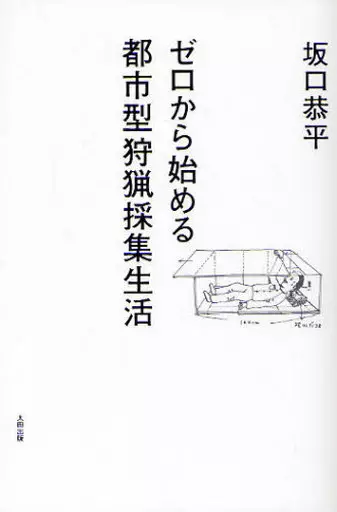 坂口恭平
ゼロから始める
都市型狩猟採集生活
太田出版